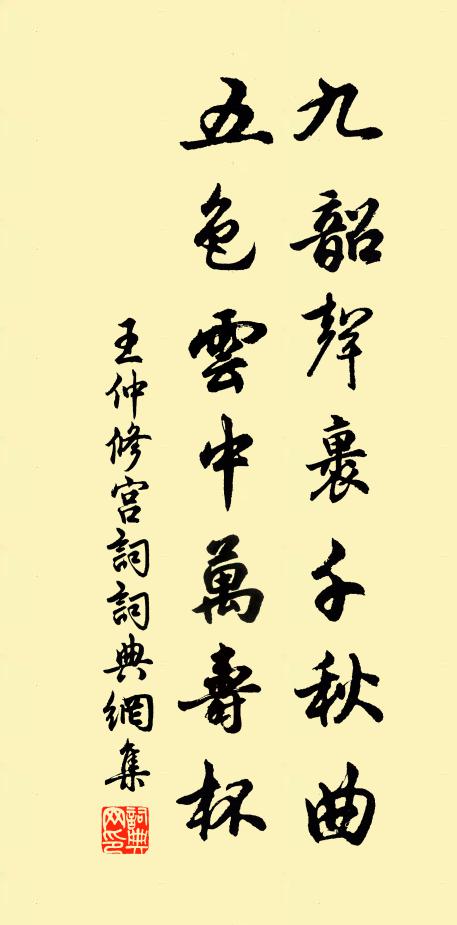 九韶聲裏千秋曲
五色雲中萬壽杯
王仲修宮詞詞典網集
詞典网印